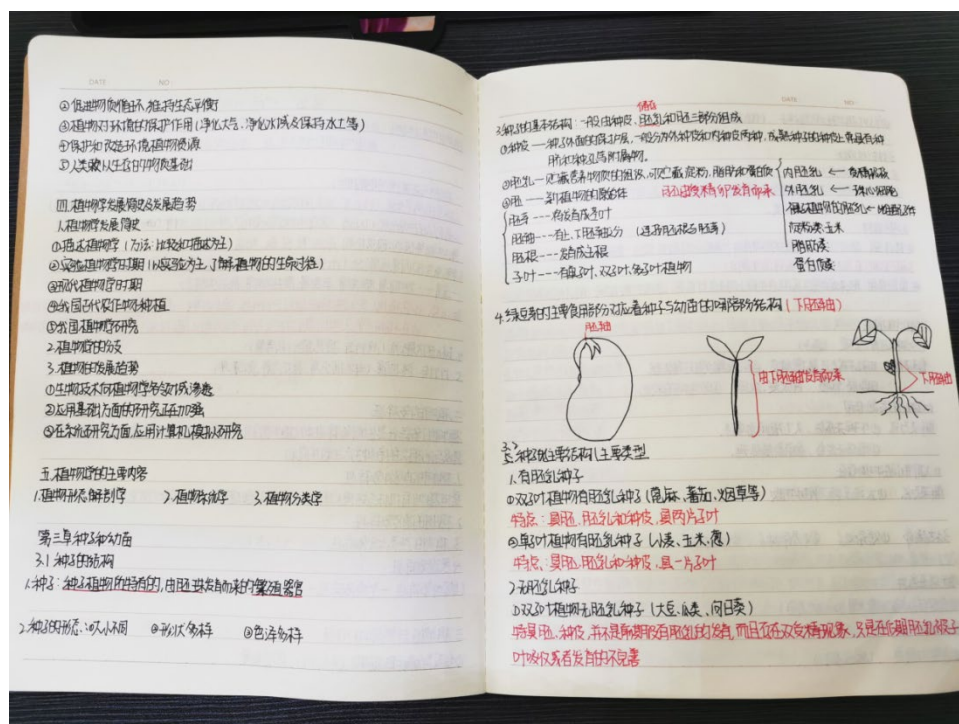 DATE NO:
②促进物质循环,维持生态平衡
③植物对环境的保护作用(净化大气、净化水域及保持水土等)
④保护和改造环境植物资源
⑤人类赖以生存的物质基础
四.植物学发展简史及发展趋势
1.植物学发展简史
①描述植物学(方法:比较和描述为主)
②实验植物学时期(以实验为主,了解植物的生命过程)
③现代植物学时期
④我国古代农作物种植
⑤我国植物学研究
2.植物学的分支
3.植物的发展趋势
①生物技术向植物学各领域渗透
②应用基础方面的研究正在加强
③在宏观研究方面,应用计算机模拟研究
五.植物学的主要内容
1.植物形态解剖学 2.植物系统学 3.植物分类学
第三章种子和幼苗
3.1种子的结构
1.种子:种子植物所特有的,由胚珠发育而来的繁殖器官
2.种子的形态:①大小不同 ②形状多样 ③色泽多样
DATE NO:
储存
3.种子的基本结构:一般由种皮、胚乳和胚三部分组成
①种皮——种子外面的保护层,一般分为外种皮和内种皮两种,成熟种子的种皮上常具有种
脐和种孔等附属物。
②胚乳—贮藏营养物质的组织,可贮藏淀粉、脂肪和蛋白质
③胚—新植物的原始体 由受精卵发育而来
胚芽---将发育成茎叶
胚轴---有上、下胚轴部分(连接胚根与胚芽)
胚根---发育成主根
子叶---有单子叶、双子叶、多子叶植物
内胚乳 ←
外胚乳 ← 珠心细胞
裸子植物的胚乳 ← 雌配子体
淀粉类:玉米
脂肪类
蛋白质类
4.绿豆芽的主要食用部分对应着种子与幼苗的哪部分结构(下胚轴)
胚轴
由下胚轴发育而来
下胚轴
3.2 种子的主要结构(主要类型
1.有胚乳种子
①双子叶植物有胚乳种子(蓖麻、番茄、烟草等)
特点:具胚、胚乳和种皮,具两片子叶
②单子叶植物有胚乳种子(小麦、玉米、葱)
特点:具胚、胚乳和种皮,具一片子叶
2.无胚乳种子
①双子叶植物无胚乳种子(大豆、瓜类、向日葵)
特具胚、种皮,并不是早期没有胚乳的发育,而且存在双受精现象,只是在后期胚乳被子
叶吸收或者发育的不完善